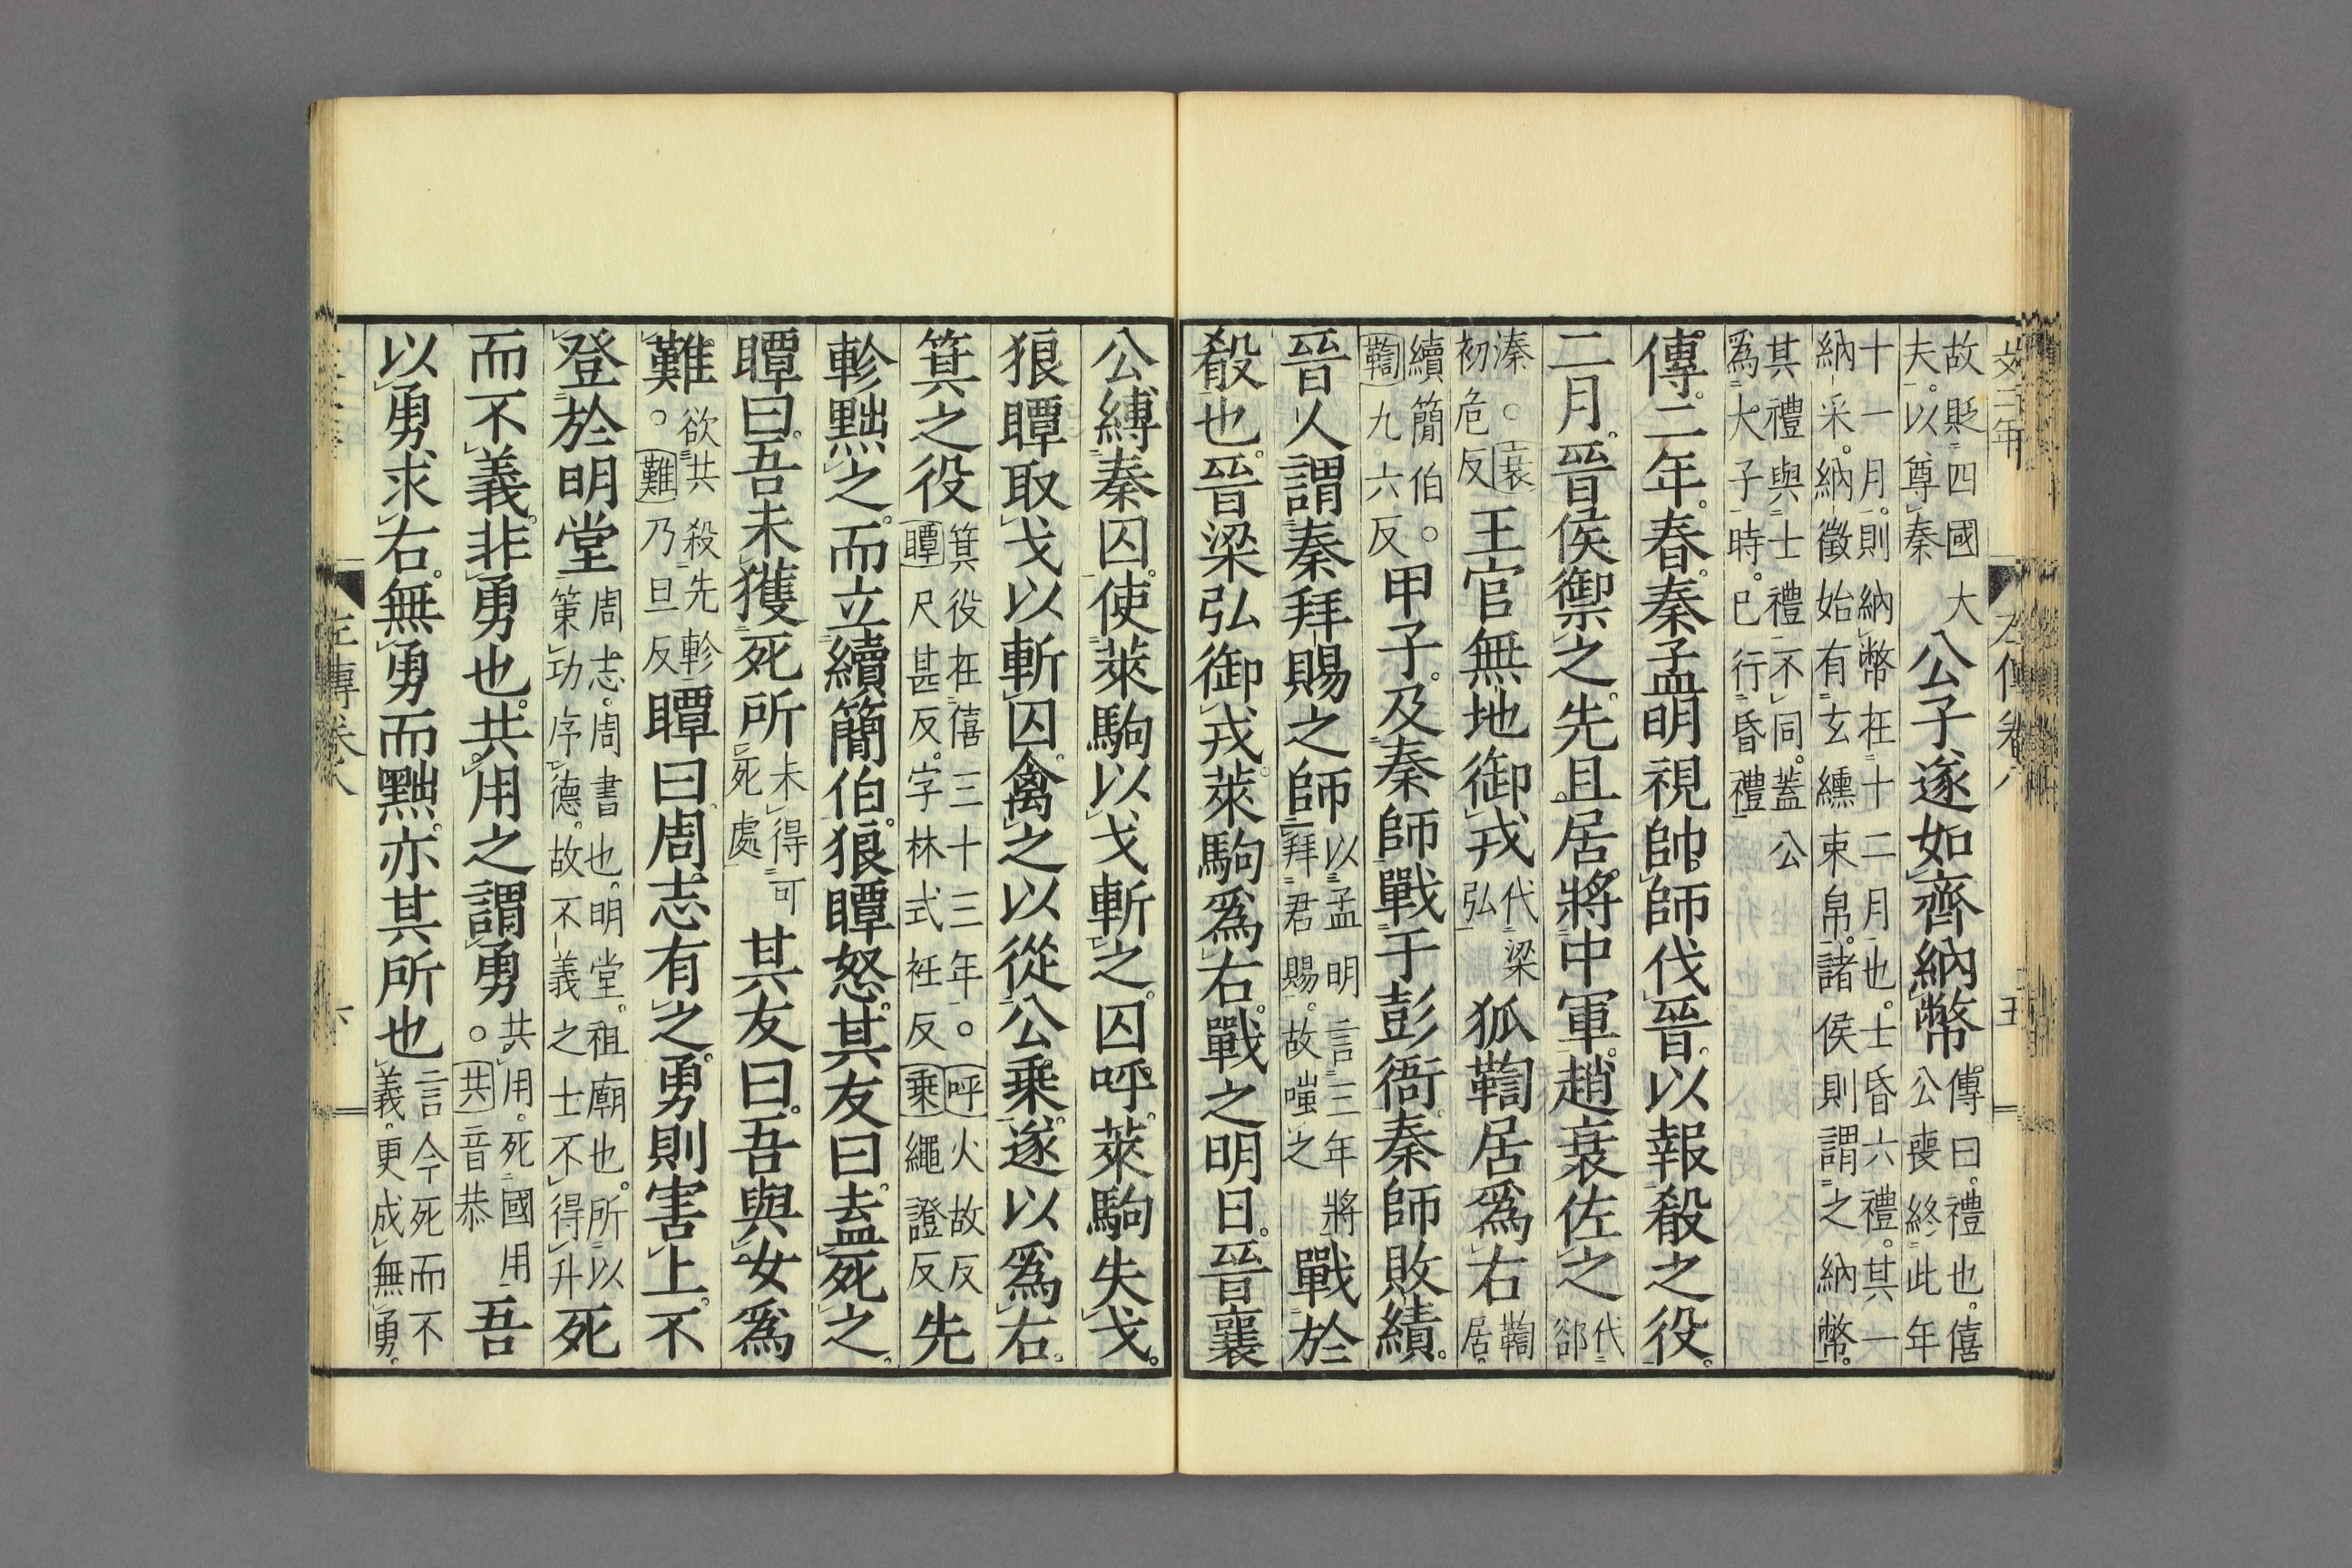 文二年 左傳卷八 五
故貶四國大夫。以尊秦公子遂如齊納幣傳曰。禮也。僖公喪終此年
十一月。則納幣在十二月也。士昏六禮。其一納采。納徵始有玄纁束帛。諸侯則謂之納幣。
其禮與士禮不同。蓋公爲大子時。已行昏禮
傳。二年。春。秦孟明視帥師伐晉。以報殽之役。
二月。晉侯禦之。先且居。將中軍。趙衰佐之代郤
溱。○衰初危反王官無地御戎代梁弘狐鞫居爲右鞫居。
續簡伯。鞫九六反甲子。及秦師戰于彭衙。秦師敗績。
晉人謂秦拜賜之師以孟明言三年將拜君賜。故嗤之戰於
殽也。晉梁弘御戎。萊駒爲右。戰之明日。晉襄
公縛秦囚。使萊駒以戈斬之。囚呼。萊駒失戈。
狼瞫取戈以斬囚。禽之以從公乘。遂以爲右。
箕之役箕役在僖三十三年。○呼火故反瞫尺甚反。字林式衽反乘繩證反先
軫黜之。而立續簡伯。狼瞫怒。其友曰。盍死之。
瞫曰。吾未獲死所未得可死處其友曰。吾與女爲
難。欲共殺先軫○難乃旦反瞫曰周志有之。勇則害上。不
登於明堂周志。周書也。明堂。祖廟也。所以策功序德。故不義之士不得升死
而不義。非勇也。共用之謂勇共用。死國用○共音恭吾
以勇求右。無勇而黜。亦其所也言今死而不義。更成無勇。
左傳卷八 六